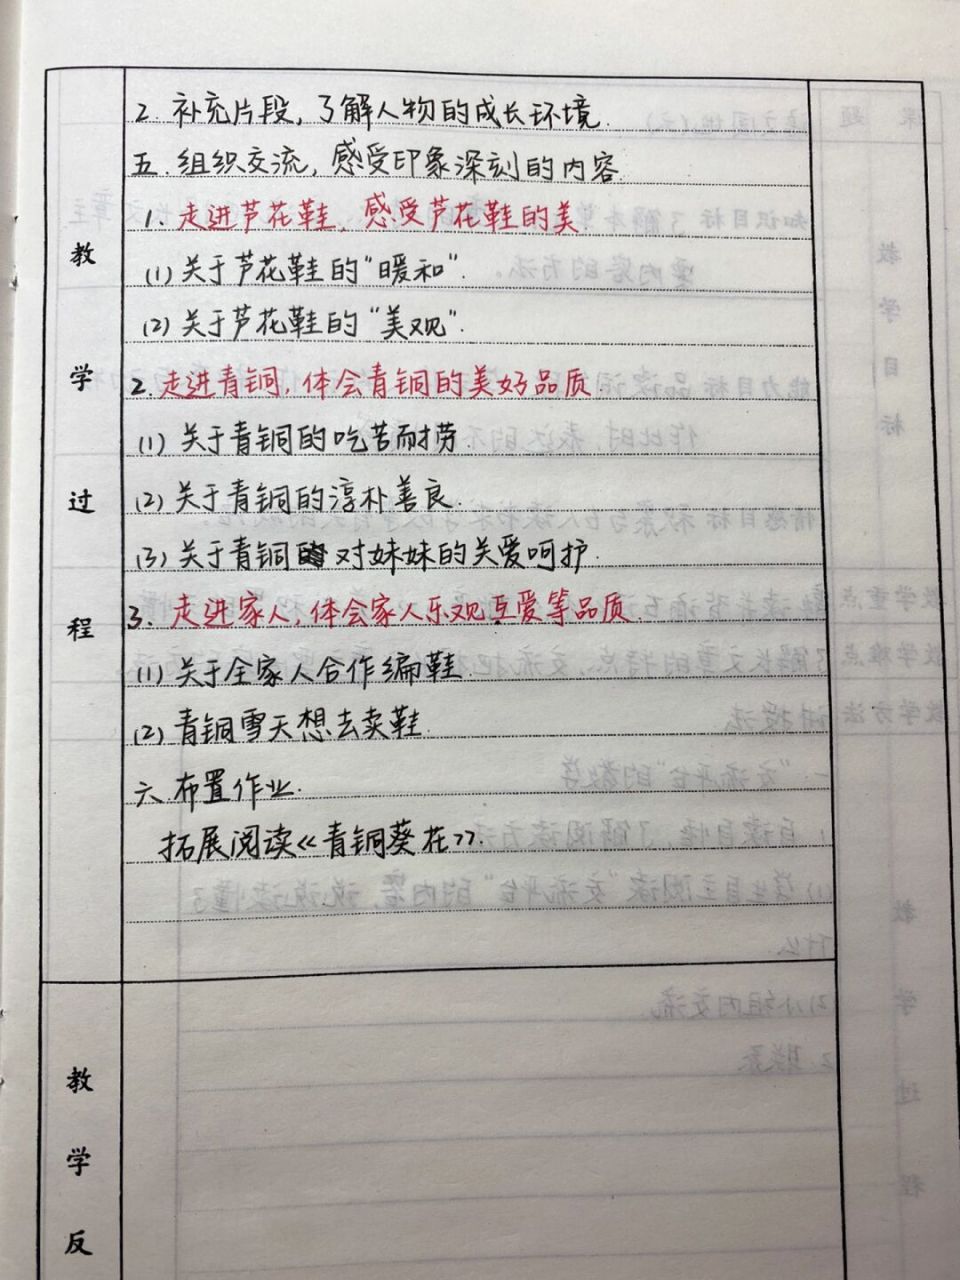 2. 补充片段，了解人物的成长环境.
五. 组织交流，感受印象深刻的内容.
1. 走进芦花鞋，感受芦花鞋的美.
(1) 关于芦花鞋的“暖和”.
(2) 关于芦花鞋的“美观”.
2. 走进青铜，体会青铜的美好品质.
(1) 关于青铜的吃苦而耐劳
(2) 关于青铜的淳朴善良.
(3) 关于青铜对妹妹的关爱呵护.
3. 走进家人，体会家人乐观互爱等品质.
(1) 关于全家人合作编鞋.
(2) 青铜雪天想去卖鞋.
六. 布置作业.
拓展阅读《青铜葵花》.
教
学
过
程
教
学
反